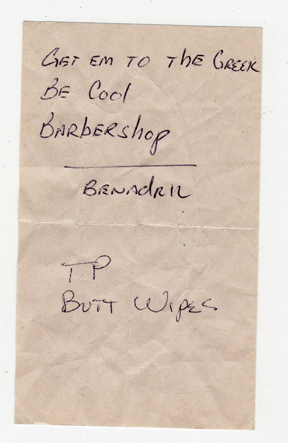 Get em to the Greek
Be Cool
Barbershop
Benadril
TP
Butt Wipes